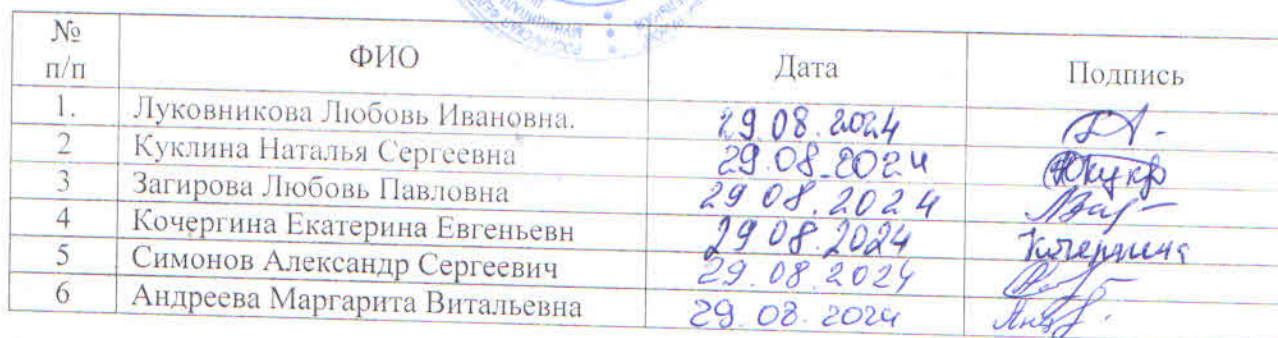 № п/п ФИО Дата Подпись
1. Луковникова Любовь Ивановна. 29.08.2024
2 Куклина Наталья Сергеевна 29.08.2024
3 Загирова Любовь Павловна 29 08.2024
4 Кочергина Екатерина Евгеньевн 29 08.2024 Кочергина
5 Симонов Александр Сергеевич 29.08.2024
6 Андреева Маргарита Витальевна 29.08.2024